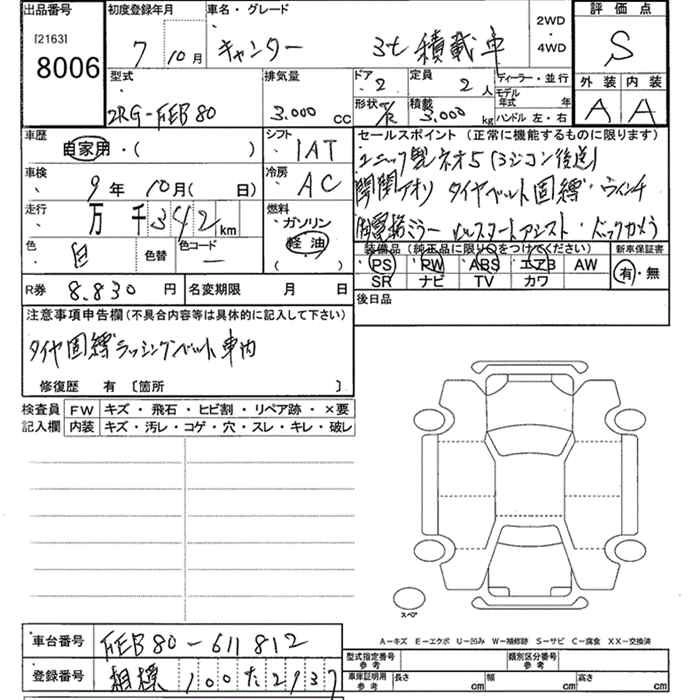 出品番号
[2163]
8006
初度登録年月
7 10月
車名・グレード
キャンター 3t 積載車
2WD
・
4WD
評価点
S
外装 内装
A A
型式
2RG-FEB80
排気量
3.000 cc
ドア
2
定員
2 人
形状
積載
3,000 kg
ディーラー・並行
モデル年式 年
ハンドル 左・右
車歴
自家用・( )
シフト
IAT
車検
9年 10月( 日)
冷房
AC
走行
万 千 342 km
燃料
ガソリン
軽油
( )
色
白
色替
色コード
セールスポイント (正常に機能するものに限ります)
ユニック製ネオ5(ラジコン後送)
開閉アオリ タイヤベルト固縛・ウィンチ
ミラー ヒルスタートアシスト・バックカメラ
装備品(純正品に限り○をつけてください)
新車保証書
PS RW ABS エアB AW
SR ナビ TV カワ
有・無
R券 8.830 円
名変期限 月 日
後日品
注意事項申告欄(不具合内容等は具体的に記入して下さい)
タイヤ固縛ラッシングベルト車内
修復歴 有 〔箇所 〕
検査員
記入欄
FW キズ・飛石・ヒビ割・リペア跡・×要
内装 キズ・汚レ・コゲ・穴・スレ・キレ・破レ
スペア
A-キズ E-エクボ U-凹み W-補修跡 S-サビ C-腐食 XX-交換済
車台番号 FEB80-611812
登録番号 相模 100 た 2937
型式指定番号
参考
類別区分番号
参考
車庫証明用
参考
長さ cm 幅 cm 高さ cm